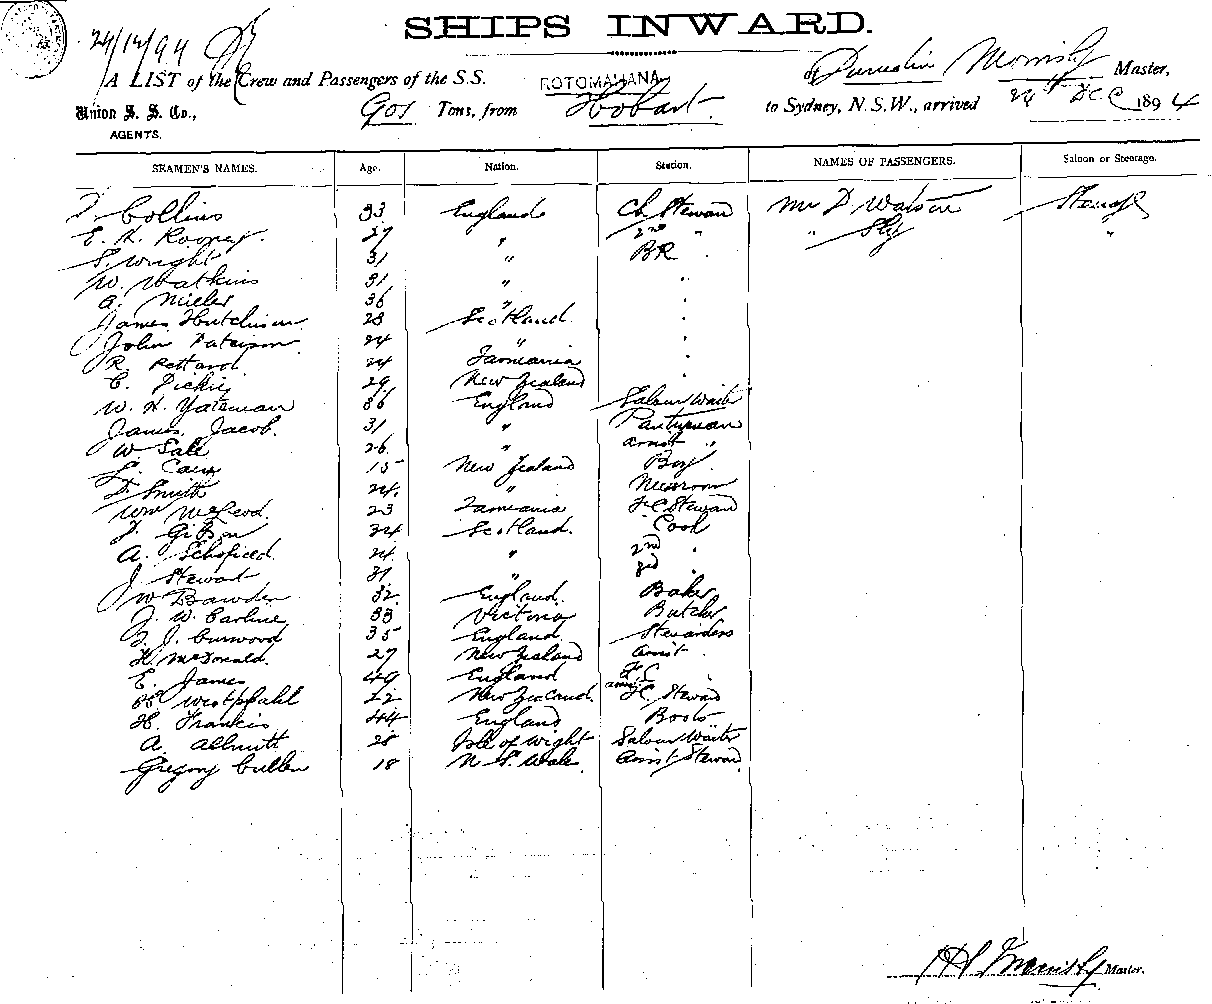 SHIPS INWARD.
24/12/94
A LIST of the Crew and Passengers of the S.S. ROTOMAHANA of Master,
Union S. S. Co., 901 Tons, from Hobart to Sydney, N.S.W., arrived 24th Dec 1894
AGENTS.
SEAMEN'S NAMES. Age. Nation. Station. NAMES OF PASSENGERS. Saloon or Steerage.
Collins 33 England Ch Steward Mr D Watson Steerage
E. 27 " 2nd " " Sly "
S. Wright 31 " BR
W. Watkins 31 " "
A. Miller 36 " "
James Hutchison 28 Scotland "
John Paterson 24 " "
R. Pettard 24 Tasmania "
C. Dickie 29 New Zealand
W. H. Yateman 36 England Saloon Waiter
James Jacob. 31 " Pantryman
W Sale 26 " assist "
15 New Zealand Boy
Smith 24 " Messroom
Wm McLeod 23 Tasmania F.C Steward
Gibson 34 Scotland Cook
A. Schofield 24 " 2nd "
J. Stewart 31 " 3rd "
W Bawden 32 England Baker
J. W. 33 Victoria Butcher
J. Curwood 35 England Stewardess
H. McDonald. 27 New Zealand assist
E. James 49 England F.C
Westphahl 22 New Zealand F.C. Steward
H. Francis 44 England Boots
A. 28 Isle of Wight Saloon Waiter
Gregory Cullen 18 N. S. Wales Assist Steward
Master.